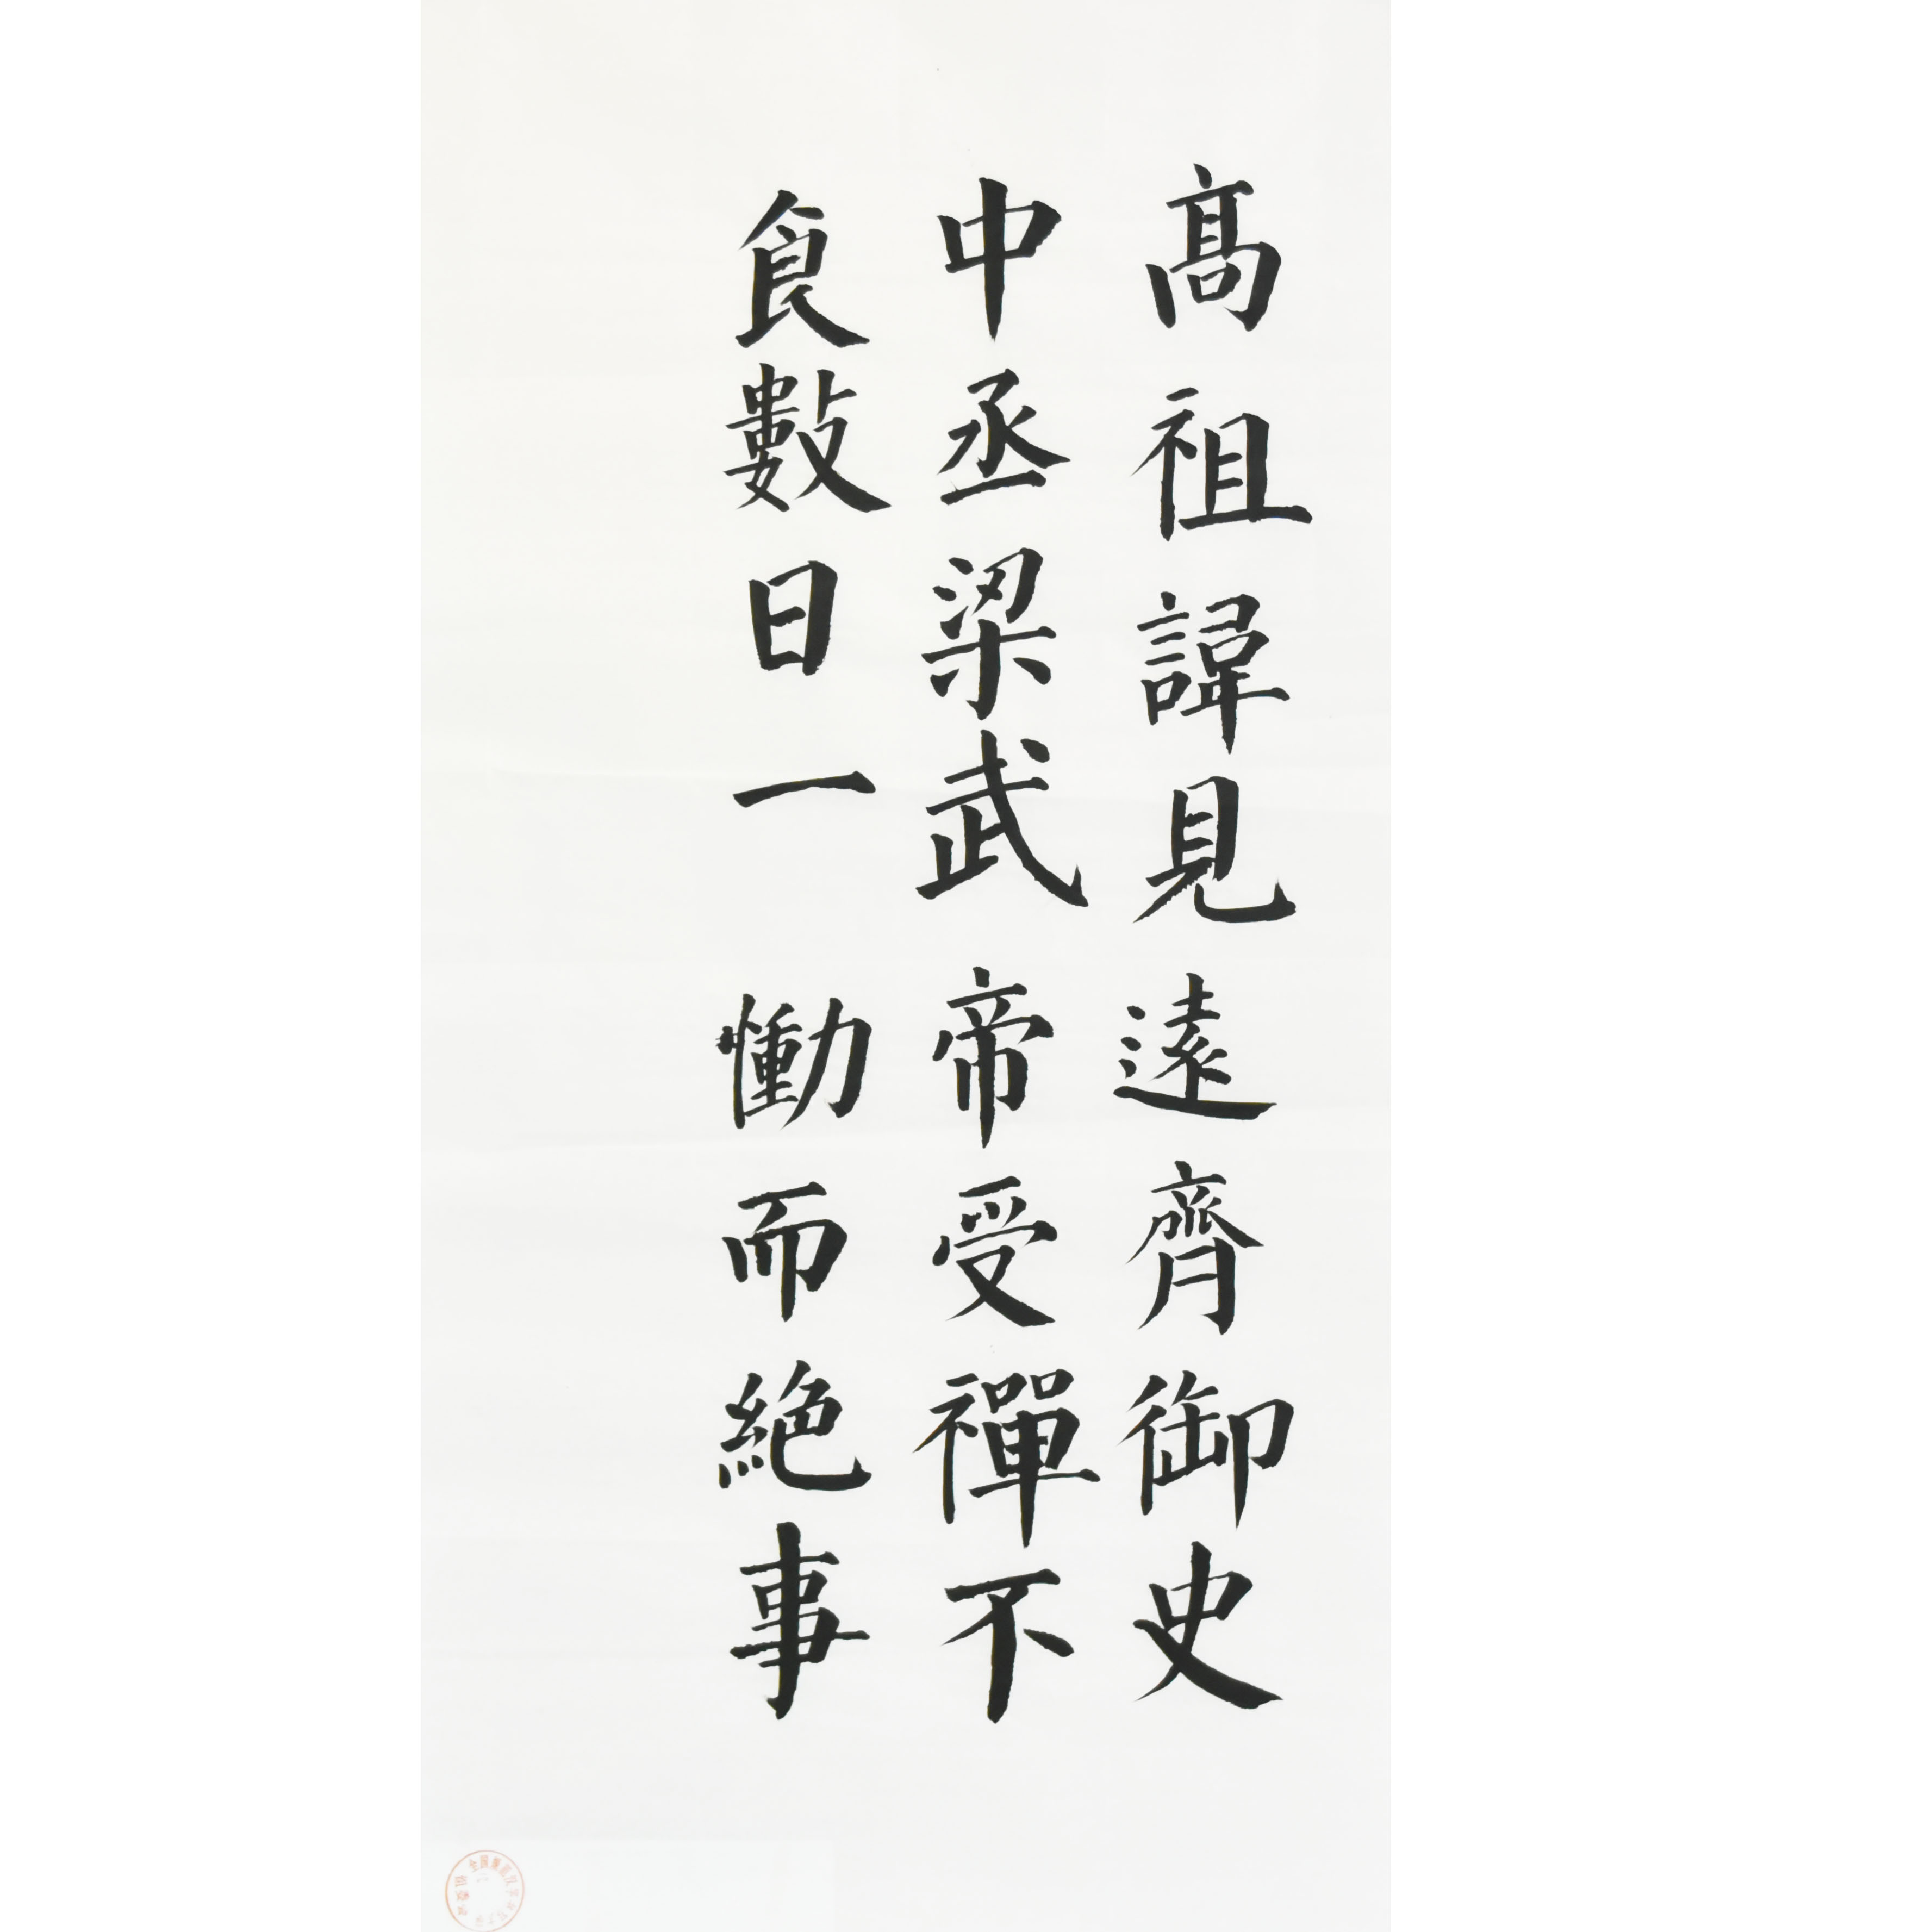 高祖諱見遠齊御史
中丞梁武帝受禪不
食數日一慟而絕事